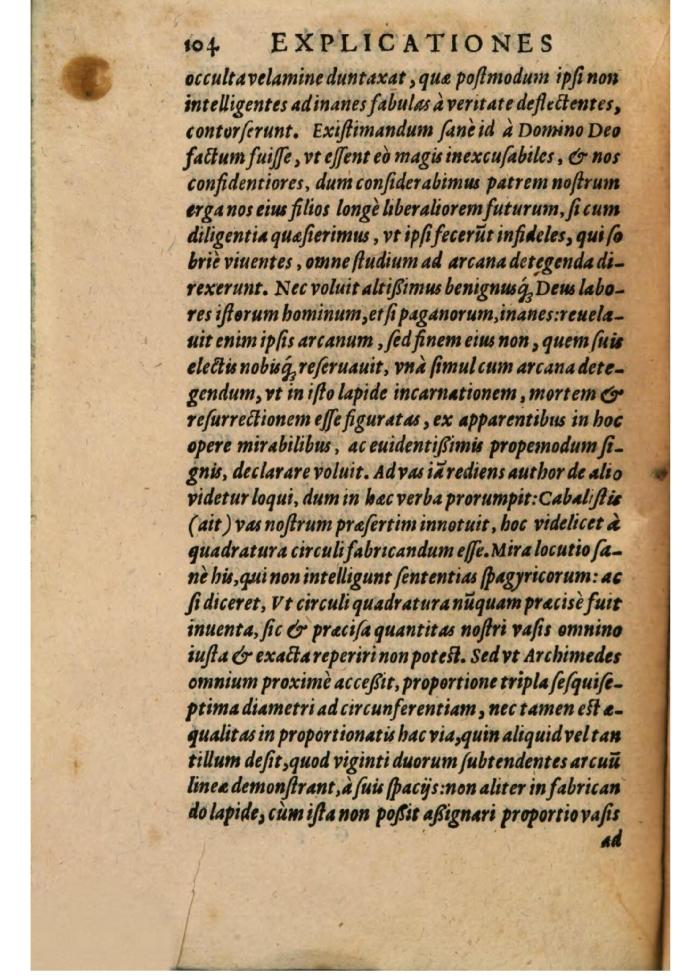 104 EXPLICATIONES
occulta velamine duntaxat, quæ postmodum ipsi non
intelligentes ad inanes fabulas à veritate deflectentes,
contorserunt. Existimandum sanè id à Domino Deo
factum fuisse, vt essent eò magis inexcusabiles, & nos
confidentiores, dum considerabimus patrem nostrum
erga nos eius filios longè liberaliorem futurum, si cum
diligentia quæsierimus, vt ipsi fecerūt infideles, qui so
briè viuentes, omne studium ad arcana detegenda di-
rexerunt. Nec voluit altißimus benignusq́; Deus labo-
res istorum hominum, etsi paganorum, inanes: reuela-
uit enim ipsis arcanum, sed finem eius non, quem suis
electis nobisq́; reseruauit, vnà simul cum arcana dete-
gendum, vt in isto lapide incarnationem, mortem &
resurrectionem esse figuratas, ex apparentibus in hoc
opere mirabilibus, ac euidentißimis propemodum si-
gnis, declarare voluit. Ad vas iā rediens author de alio
videtur loqui, dum in hæc verba prorumpit: Cabalistis
(ait) vas nostrum præsertim innotuit, hoc videlicet à
quadratura circuli fabricandum esse. Mira locutio sa-
nè his, qui non intelligunt sententias spagyricorum: ac
si diceret, Vt circuli quadratura nūquam præcisè fuit
inuenta, sic & præcisa quantitas nostri vasis omnino
iusta & exacta reperiri non potest. Sed vt Archimedes
omnium proximè acceßit, proportione tripla sesquise-
ptima diametri ad circunferentiam, nec tamen est æ-
qualitas in proportionatis hac via, quin aliquid vel tan
tillum desit, quod viginti duorum subtendentes arcuū
lineæ demonstrant, à suis spacijs: non aliter in fabrican
do lapide, cùm ista non poßit aßignari proportio vasis
ad